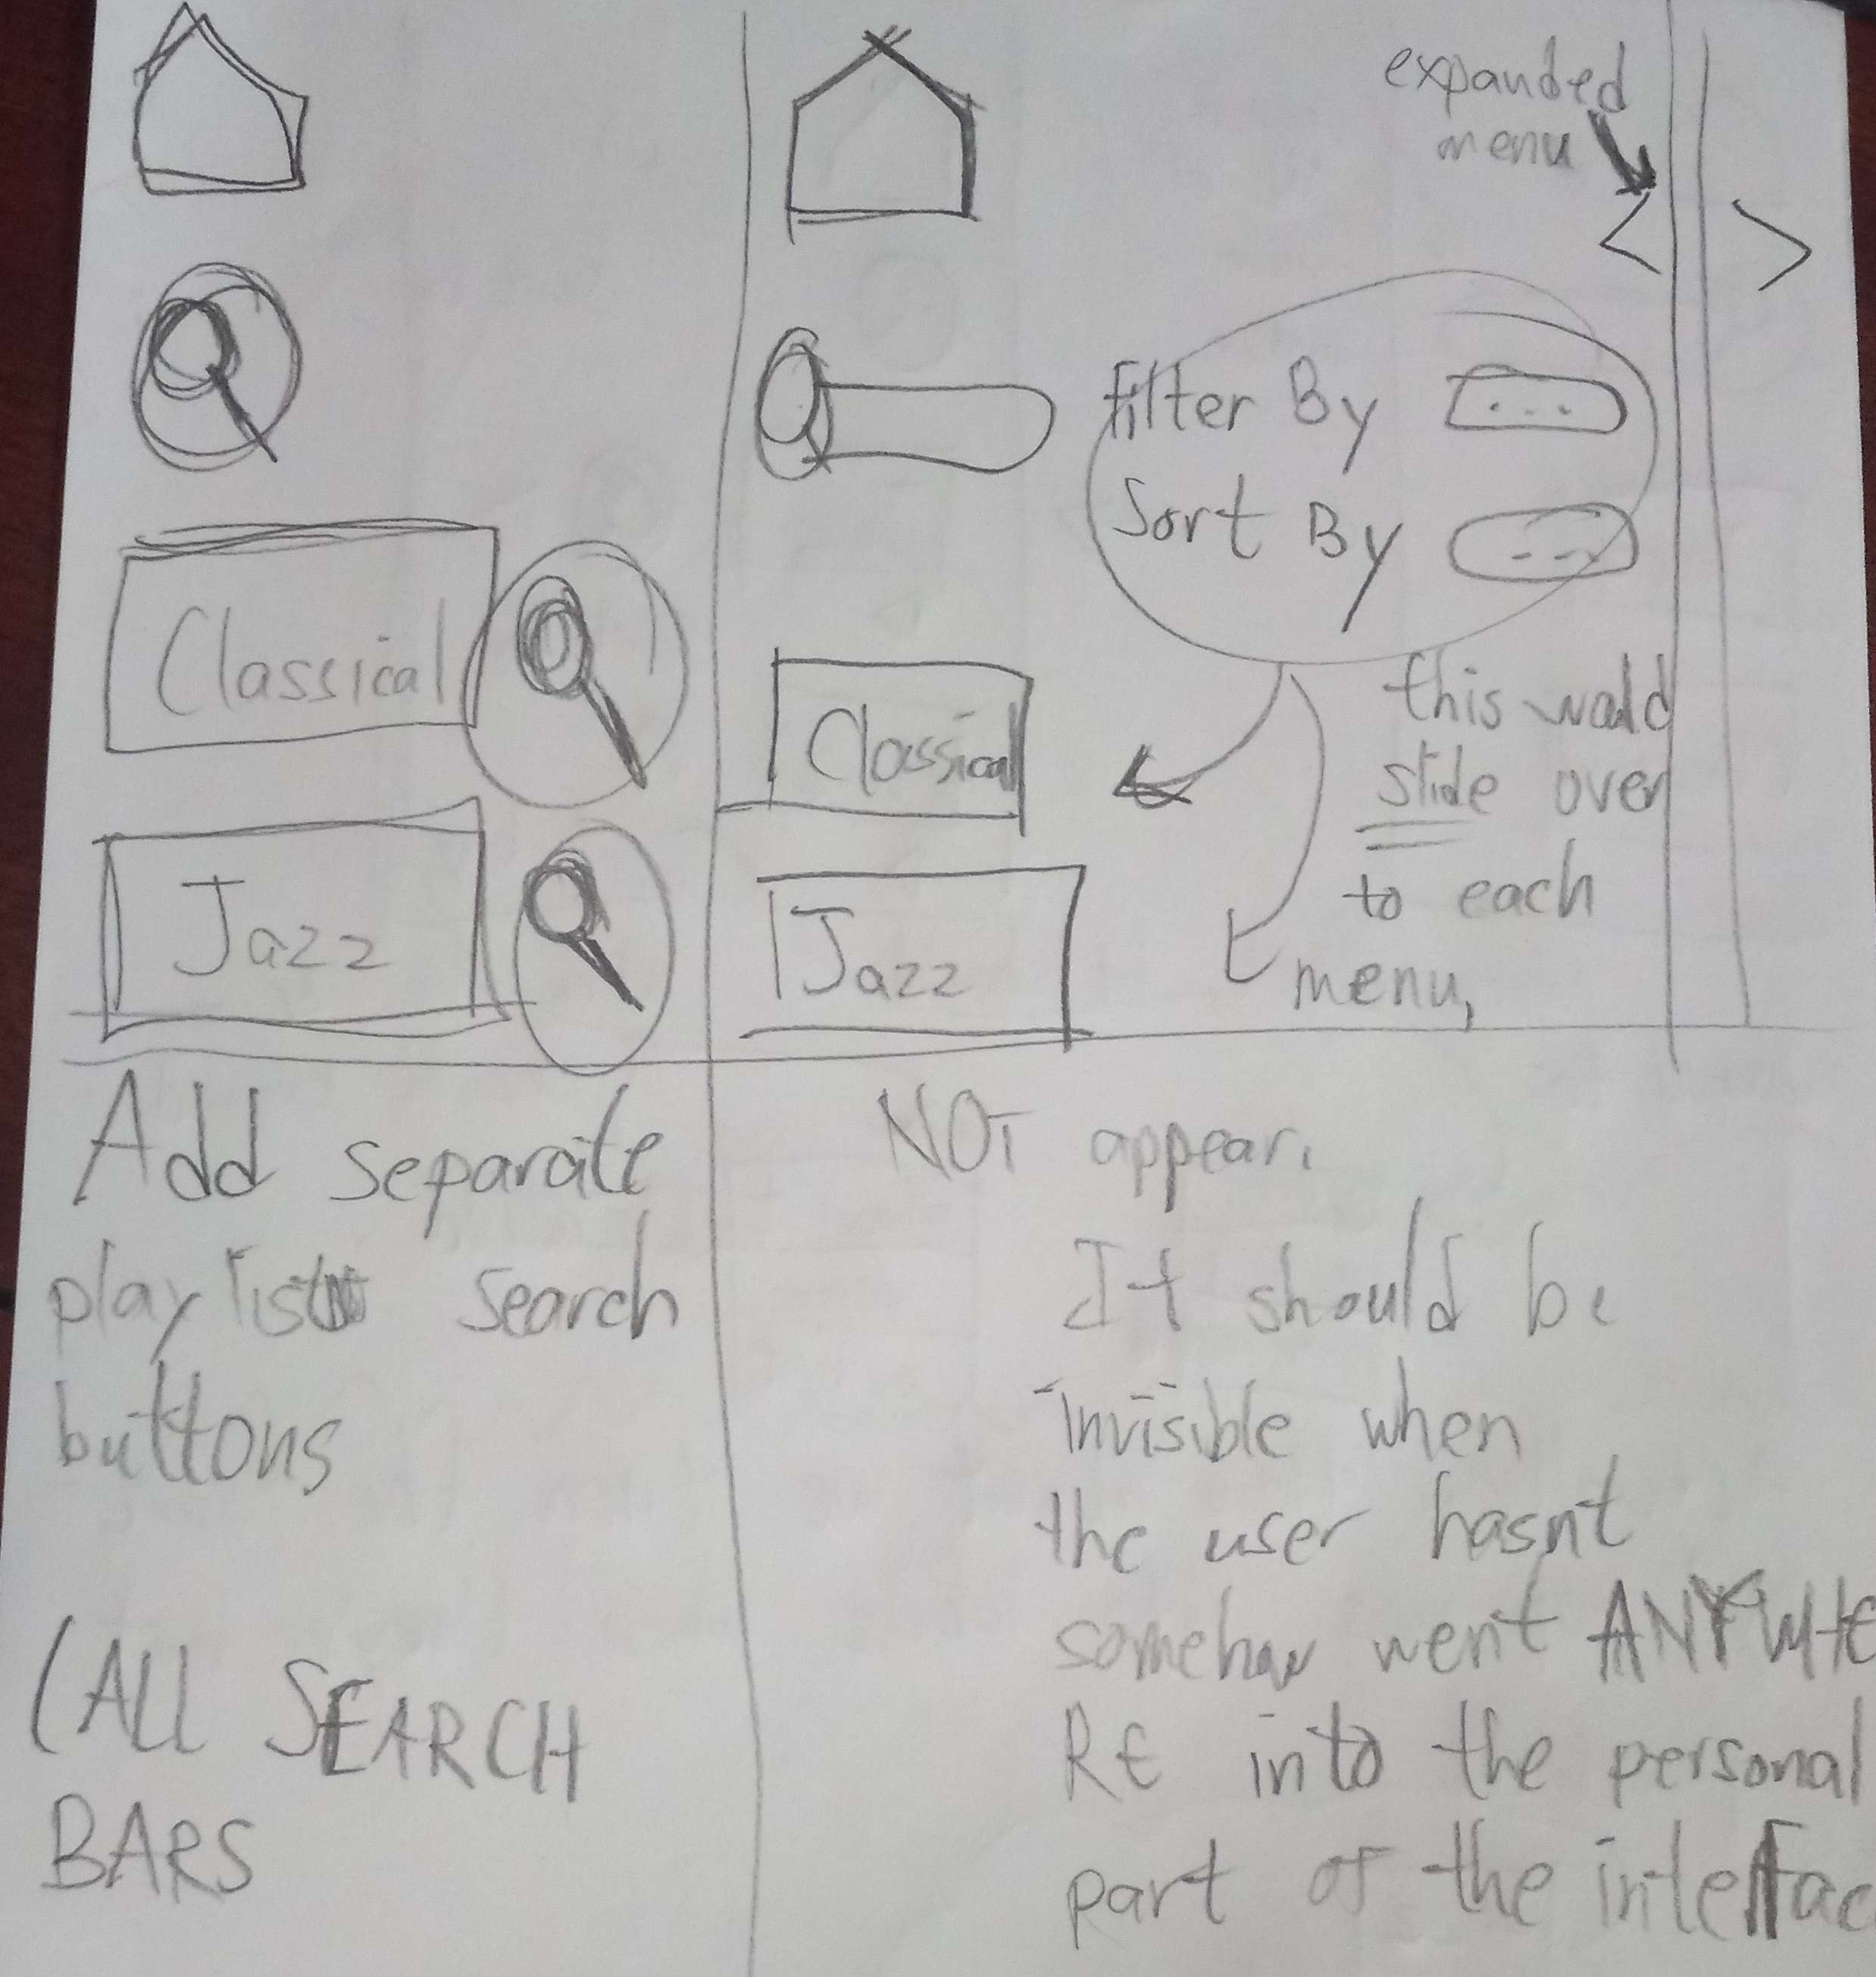 Classical
Jazz
Add separate
playlist search
buttons
(ALL SEARCH
BARS
expanded
menu
<
>
filter By ...
Sort By ---
Classical
Jazz
this would
slide over
to each
menu,
NOT appear.
It should be
invisible when
the user hasnt
somehow went ANYWHE
RE into the personal
part of the interfac